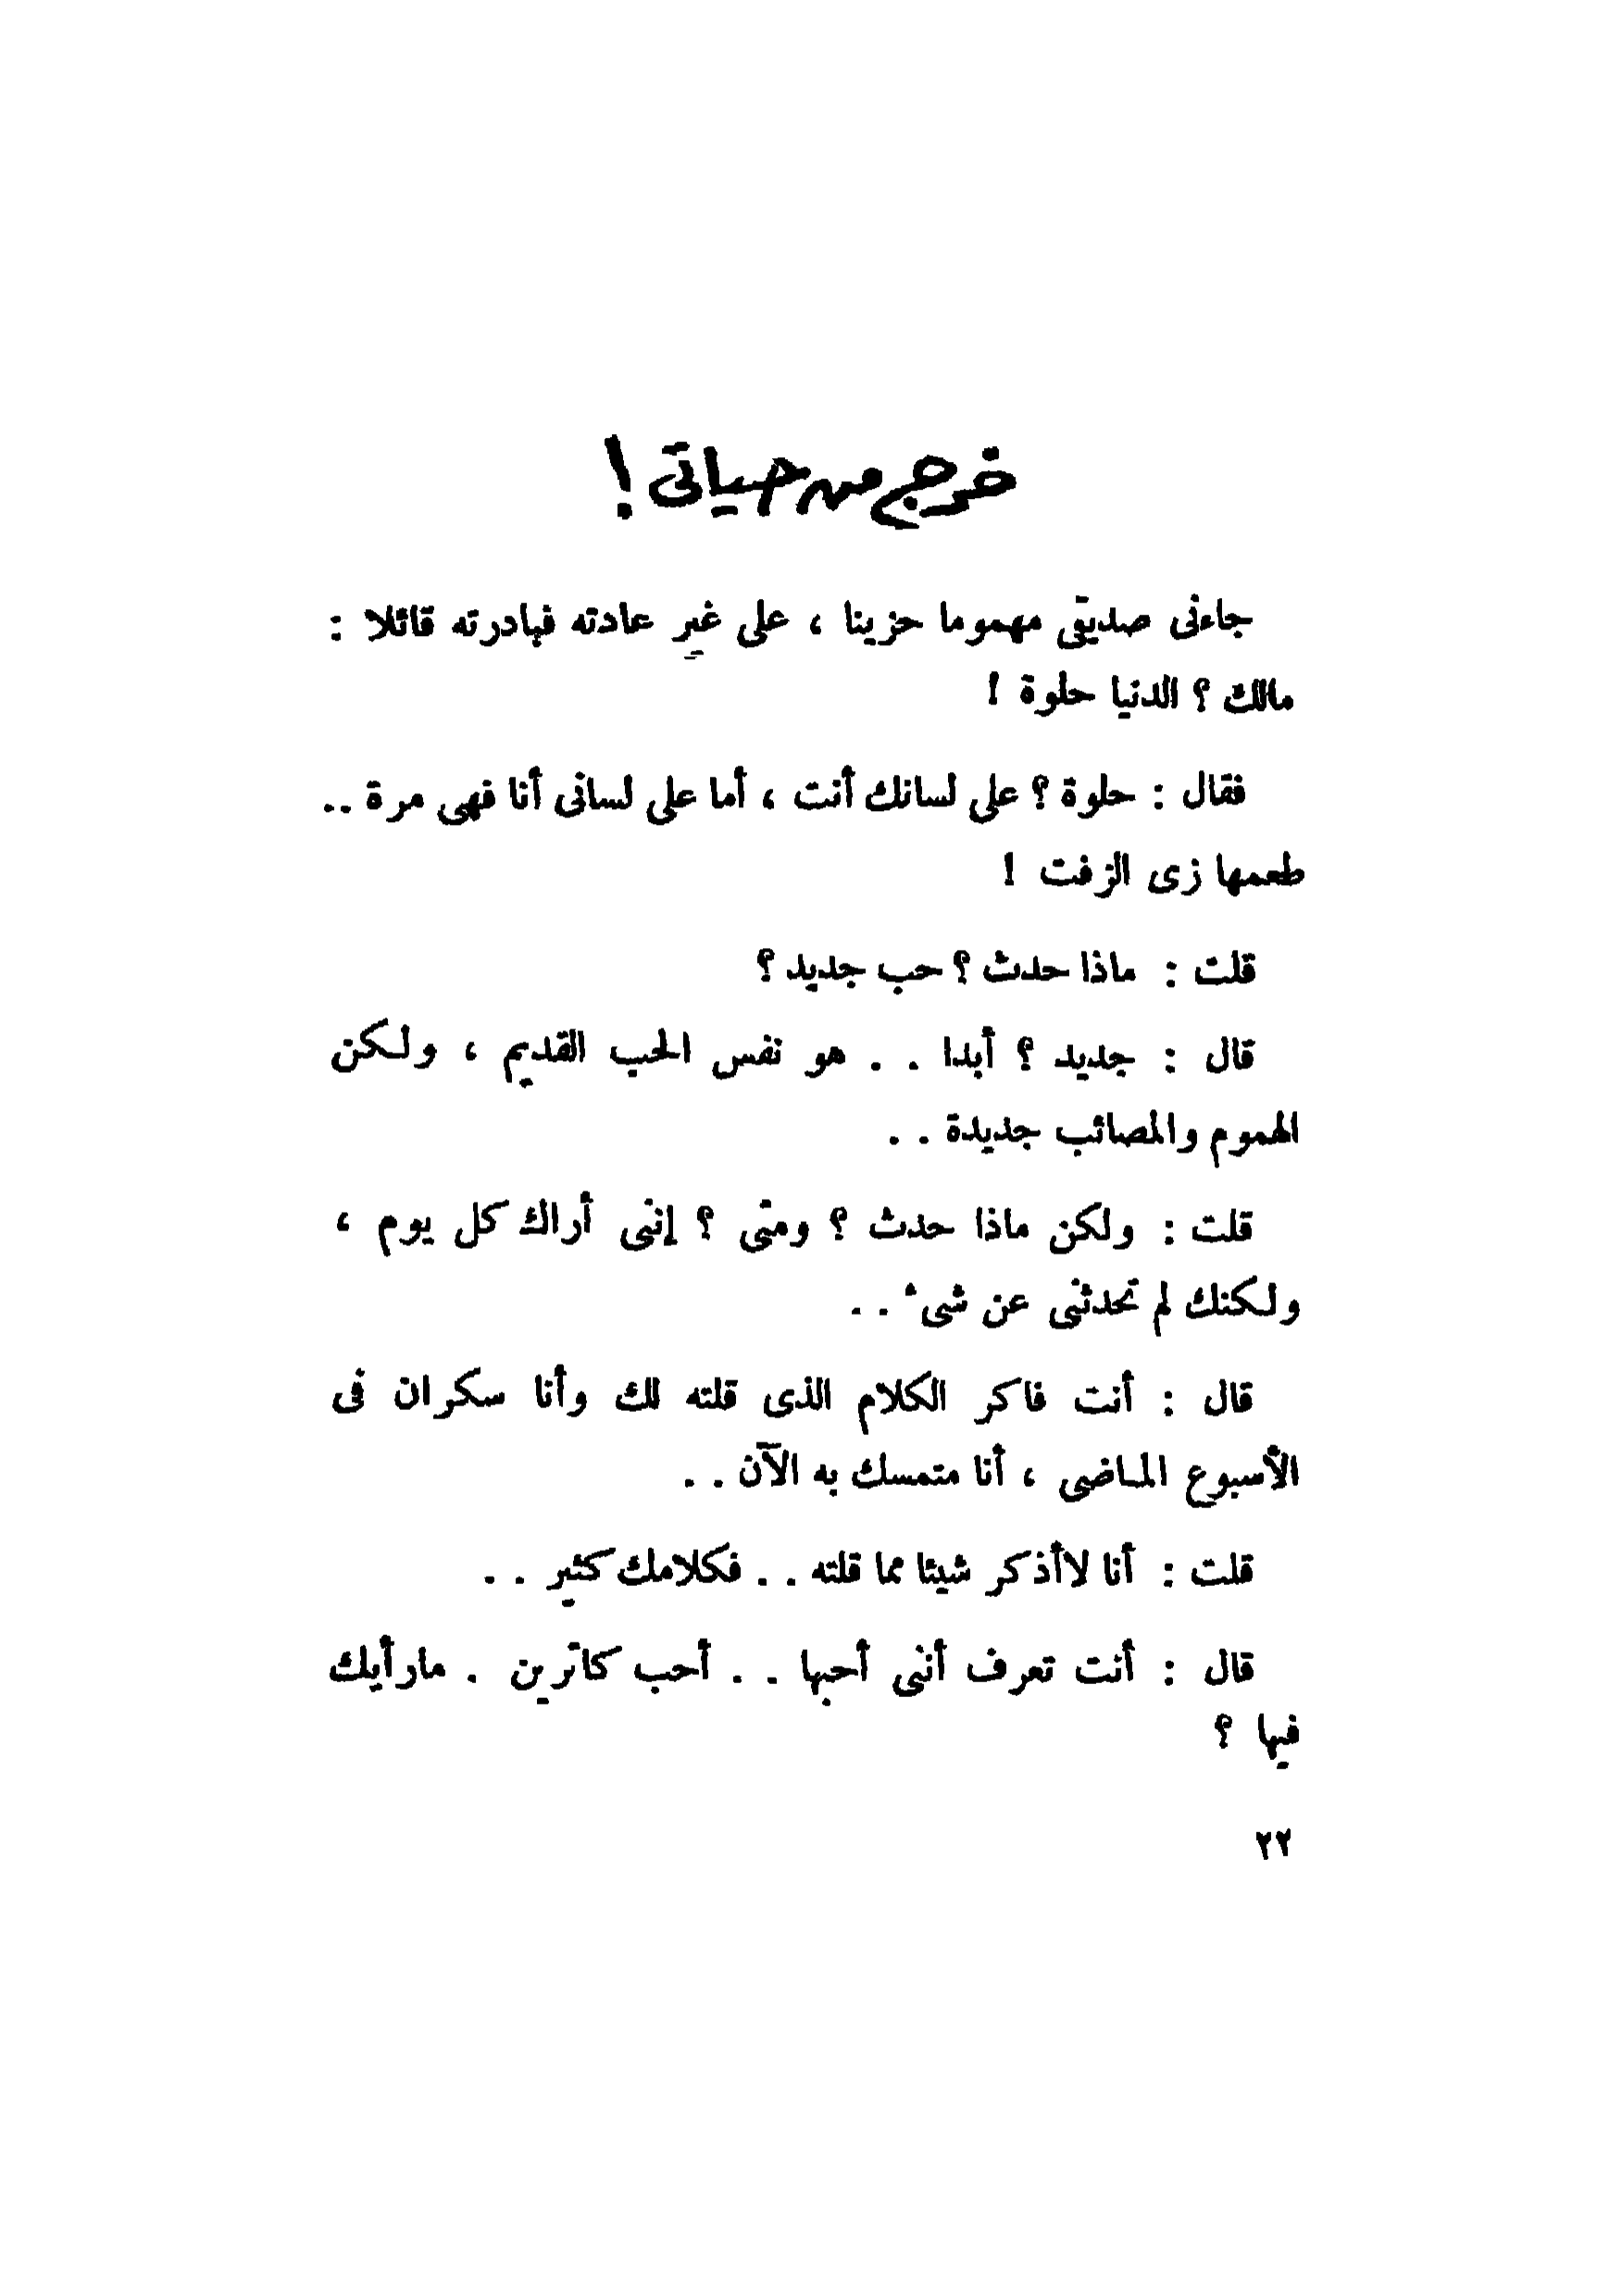 خرج من حياتى !
جاءنى صديقى مهموما حزينا ، على غير عادته فبادرته قائلا :
مالك ؟ الدنيا حلوة !
فقال : حلوة ؟ على لسانك أنت ، أما على لسانى أنا فهى مرة ..
طعمها زى الزفت !
قلت : ماذا حدث ؟ حب جديد ؟
قال : جديد ؟ أبدا . . هو نفس الحب القديم ، ولكن
الهموم والمصائب جديدة . .
قلت : ولكن ماذا حدث ؟ ومتى ؟ إننى أراك كل يوم ،
ولكنك لم تحدثنى عن شىء . .
قال : أنت فاكر الكلام الذى قلته لك وأنا سكران فى
الأسبوع الماضى ، أنا متمسك به الآن . .
قلت : أنا لاأذكر شيئا مما قلته . . فكلامك كثير . .
قال : أنت تعرف أننى أحبها . . أحب كاترين . مارأيك
فيها ؟
٢٢